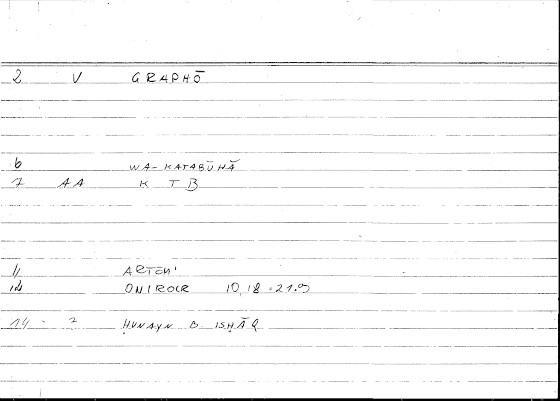 2 V GRAPHŌ
6 WA-KATABŪHĀ
7 AA K T B
11 ARTEMI
12 ONIROCR 10,18 = 21.9
14 ? ḤUNAYN B ISḤĀQ